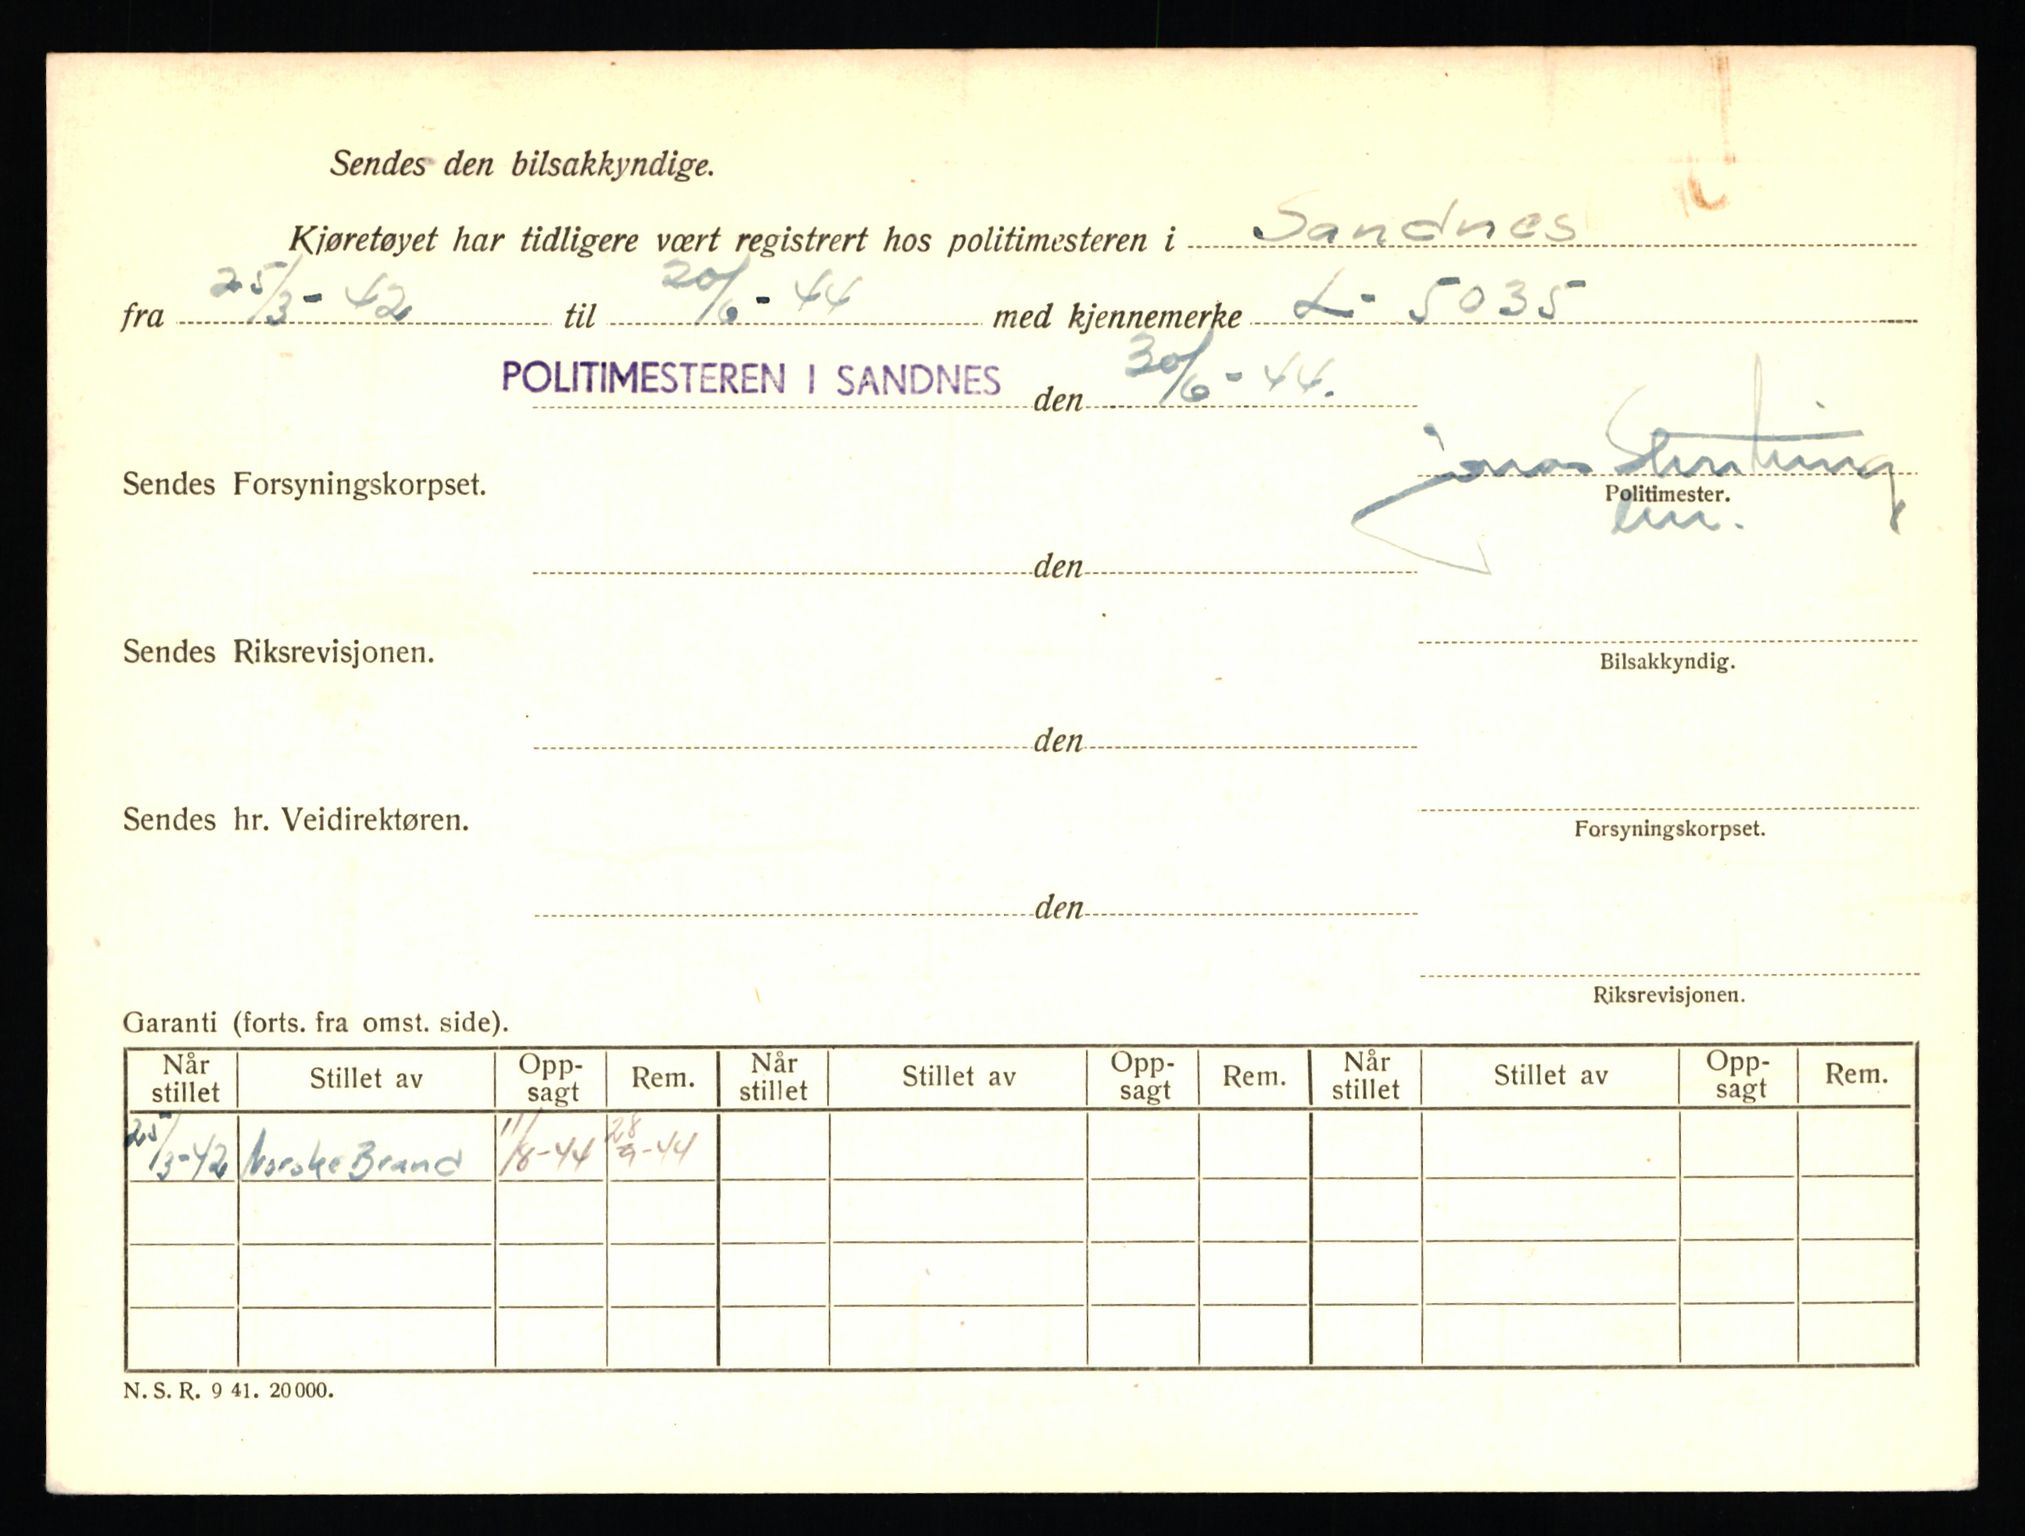 Sendes den bilsakkyndige.
Kjøretøyet har tidligere vært registrert hos politimesteren i Sandnes
fra 25/3-42 til 20/6-44 med kjennemerke L-5035
POLITIMESTEREN I SANDNES den 30/6-44.
Sendes Forsyningskorpset.
Politimester.
den
Sendes Riksrevisjonen.
Bilsakkyndig.
den
Sendes hr. Veidirektøren.
Forsyningskorpset.
den
Riksrevisjonen.
Garanti (forts. fra omst. side).
Når stillet Stillet av Opp-sagt Rem. Når stillet Stillet av Opp-sagt Rem. Når stillet Stillet av Opp-sagt Rem.
25/3-42 Norske Brand 11/8-44 28/9-44
N. S. R. 9 41. 20 000.